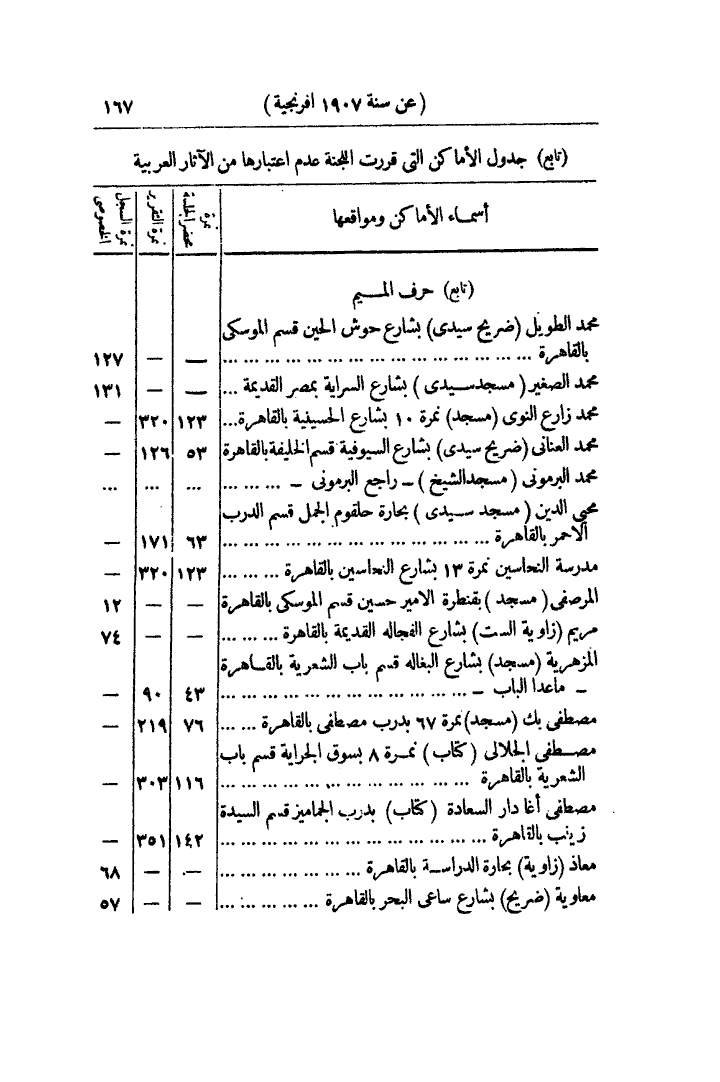 (عن سنة ١٩٠٧ افرنجية) ١٦٧
(تابع) جدول الأماكن التى قررت اللجنة عدم اعتبارها من الآثار العربية
أسماء الأماكن ومواقعها | نمرة محضر الجلسة | نمرة التقرير | نمرة السجل الخصوصى
(تابع) حرف المـــيم
محمد الطويل (ضريح سيدى) بشارع حوش الحين قسم الموسكى
بالقاهرة ... ... ... ... ... ... ... ... ... ... ... ... ... ... ... — — ١٢٧
محمد الصغير (مسجد سيدى) بشارع السراية بمصر القديمة ... — — ١٣١
محمد زارع النوى (مسجد) نمرة ١٠ بشارع الحسينية بالقاهرة... ١٢٣ ٣٢٠ —
محمد العنانى (ضريح سيدى) بشارع السيوفية قسم الخليفة بالقاهرة ٥٣ ١٢٦ —
محمد البرمونى (مسجد الشيخ) — راجع البرمونى — ... ... ... ... ... ...
محيي الدين (مسجد سيدى) بحارة حلقوم الجمل قسم الدرب
الاحمر بالقاهرة ... ... ... ... ... ... ... ... ... ... ... ... ... ٦٣ ١٧١ —
مدرسة النحاسين نمرة ١٣ بشارع النحاسين بالقاهرة ... ... ... ١٢٣ ٣٢٠ —
المرصفى (مسجد) بقنطرة الامير حسين قسم الموسكى بالقاهرة — — ١٢
مريم (زاوية الست) بشارع الفجاله القديمة بالقاهرة ... ... ... — — ٧٤
المزهرية (مسجد) بشارع البغاله قسم باب الشعرية بالقاهرة
— ماعدا الباب — ... ... ... ... ... ... ... ... ... ... ... ... ٤٣ ٩٠ —
مصطفى بك (مسجد) نمرة ٦٧ بدرب مصطفى بالقاهرة ... ... ٧٦ ٢١٩ —
مصطفى الجلالى (كتاب) نمرة ٨ بسوق الجراية قسم باب
الشعرية بالقاهرة ... ... ... ... ... ... ... ... ... ... ... ... ١١٦ ٣٠٣ —
مصطفى أغا دار السعادة (كتاب) بدرب الجماميز قسم السيدة
زينب بالقاهرة ... ... ... ... ... ... ... ... ... ... ... ... ... ١٤٢ ٣٥١ —
معاذ (زاوية) بحارة الدراسة بالقاهرة ... ... ... ... ... ... ... — — ٦٨
معاوية (ضريح) بشارع ساعى البحر بالقاهرة ... ... ... ... ... — — ٥٧